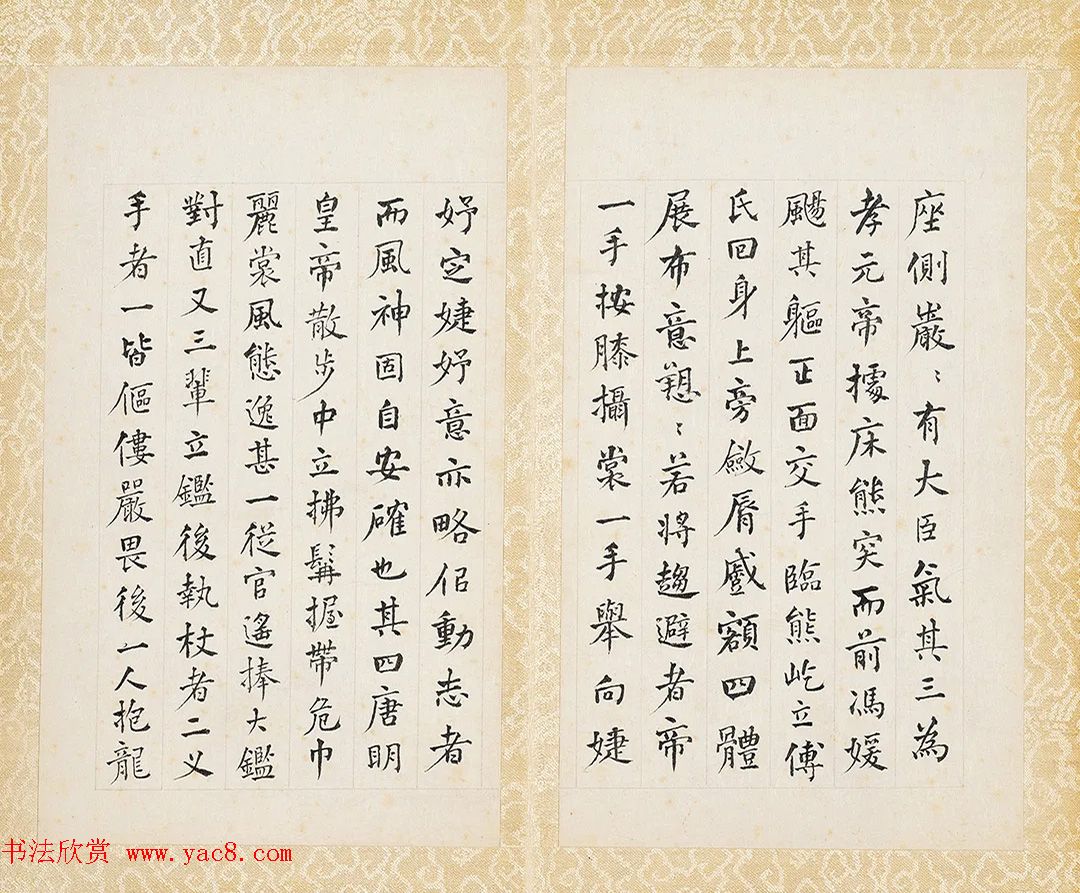 座側巖〻有大臣氣其三為
孝元帝據床熊突而前馮媛
颺其軀正面交手臨熊屹立傅
氏回身上旁斂脣蹙額四體
展布意㦖〻若將趨避者帝
一手按膝攝裳一手舉向婕
妤定婕妤意亦略侣動志者
而風神固自安確也其四唐明
皇帝散步中立拂髯握帶危巾
麗裳風態逸甚一從官遙捧大鑑
對直又三輩立鑑後執杖者二义
手者一皆傴僂嚴畏後一人抱龍
书法欣赏 www.yac8.com